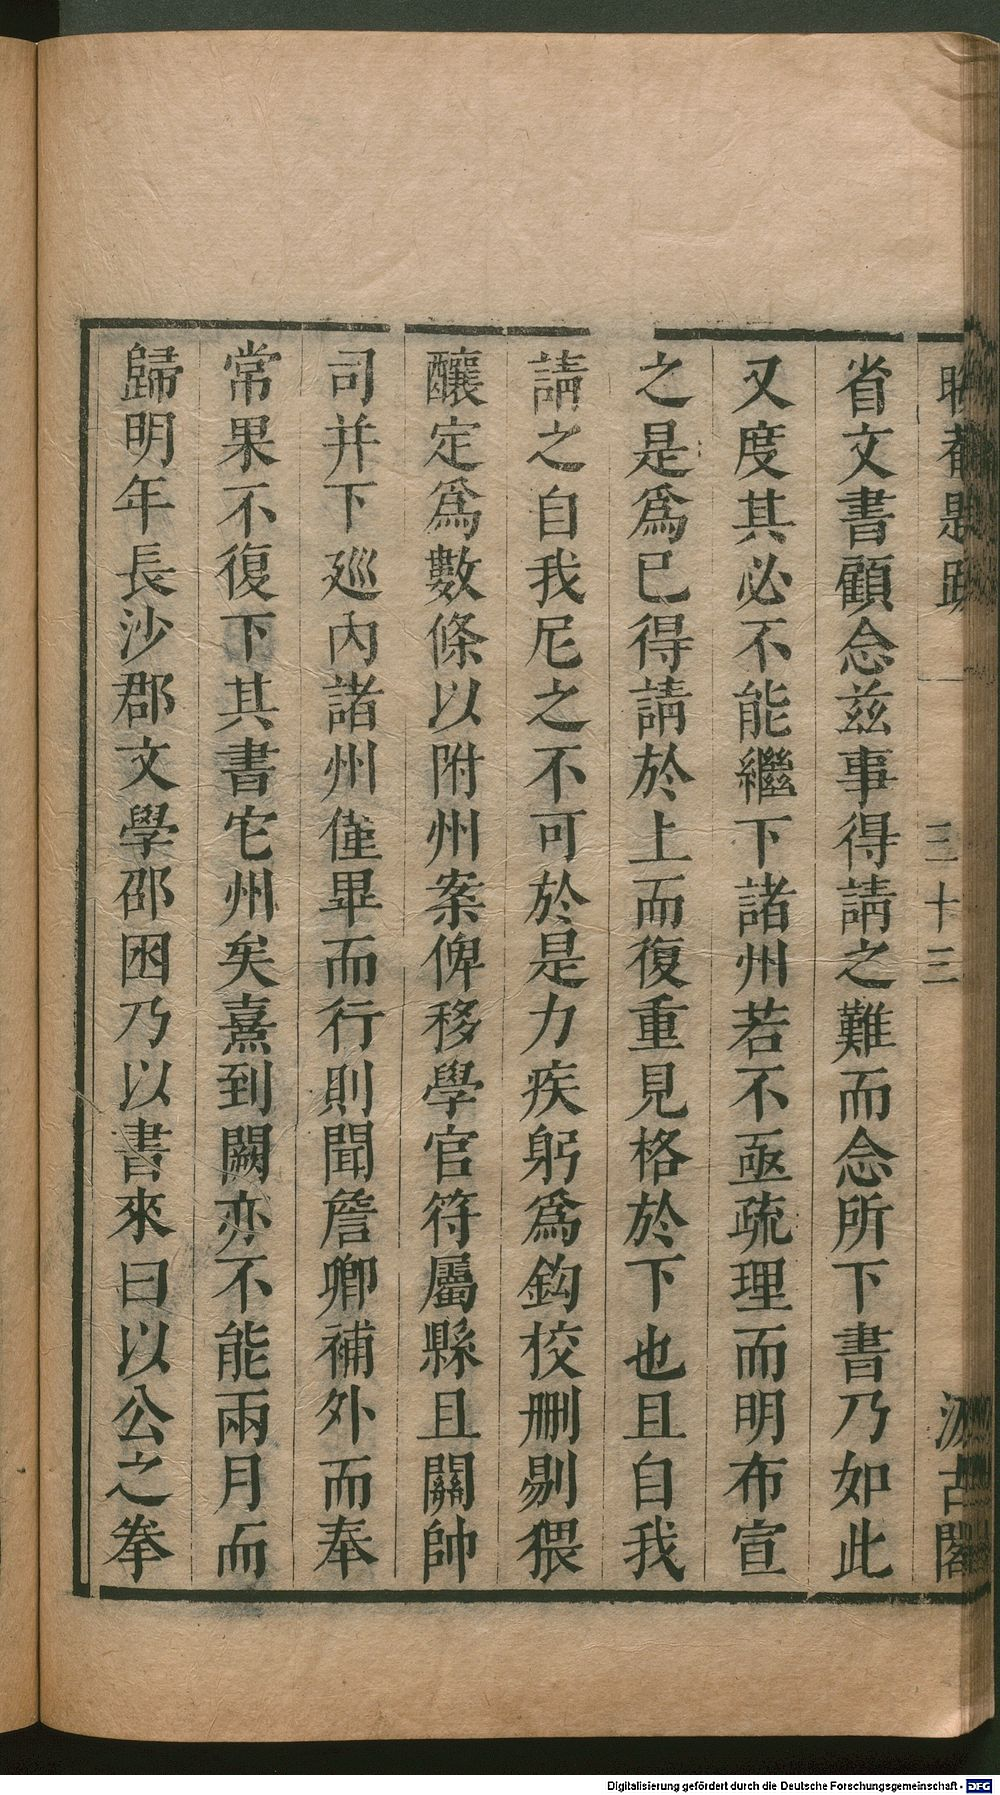 晦菴題跋 一 三十三 汲古閣
省文書顧念兹事得請之難而念所下書乃如此
又度其必不能繼下諸州若不亟疏理而明布宣
之是爲已得請於上而復重見格於下也且自我
請之自我尼之不可於是力疾躬爲鈎校刪剔猥
釀定爲數條以附州案俾移學官符屬縣且關帥
司并下廵內諸州僅畢而行則聞詹卿補外而奉
常果不復下其書它州矣熹到闕亦不能兩月而
歸明年長沙郡文學邵囦乃以書來曰以公之拳
Digitalisierung gefördert durch die Deutsche Forschungsgemeinschaft - DFG